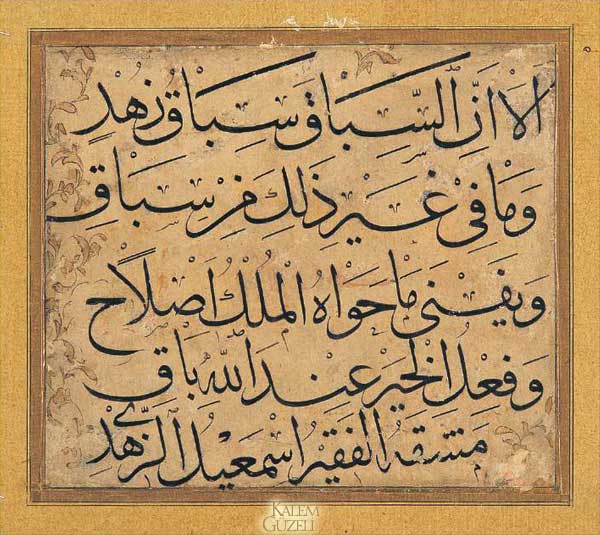 اَلَا اَنَّ السِّبَاقَ سِبَاقُ زُهْدٍ
وَمَا فِي غَيْرِ ذَلِكَ مِنْ سِبَاقِ
وَيَفْنَى مَا حَوَاهُ الْمُلْكُ اَصْلَاح
وَفِعْلُ الْخَيْرِ عِنْدَ اللّٰهِ بَاقِ
مشقه الفقير اسمعيل الزهدي
KALEM GÜZELİ